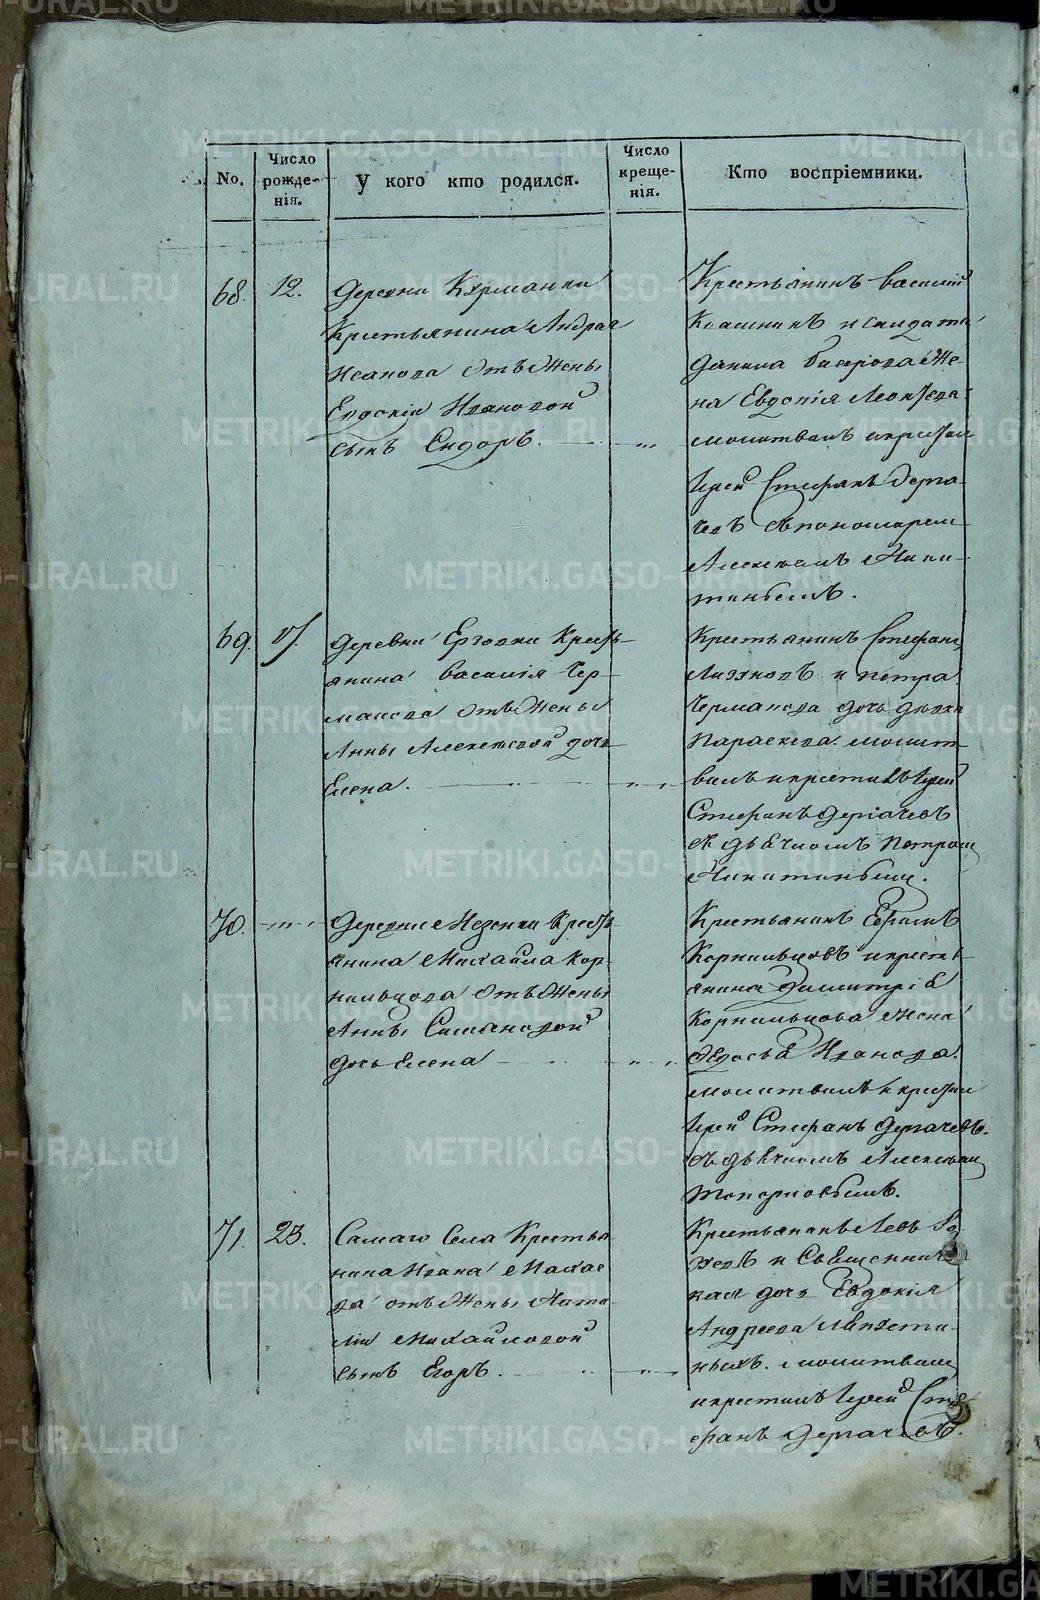 METRIKI.GASO-URAL.RU
No.
Число рожде-нія.
У кого кто родился.
Число креще-нія.
Кто воспріемники.
68.
12.
Деревни Курманки
Крестьянина Андрея
Иванова отъ Жены
Евдокіи Ивановой
сынъ Сидоръ.
Крестьянинъ Василій
Квашнинъ и Солдата
Данила Же-
на Евдокія Леонтьева
молитвилъ и крестилъ
Іерей Стефанъ Дерга-
чевъ съ пономаремъ
Алексѣемъ Ники-
тинымъ.
69.
17.
Деревни Крестьь-
янина Василія Чер-
макова отъ Жены
Анны Алексѣевой дочь
Елена.
Крестьянинъ Стефанъ
и Петра
Чермакова дочь дѣвка
Параскева. молит-
вилъ и крестилъ Іерей
Стефанъ Дергачевъ
съ дьячкомъ Петромъ
Никитинымъ.
70.
Деревни Кресть-
янина Михайла Кор-
нильцова отъ Жены
Анны Симановой
дочь Елена
Крестьянинъ Ефимъ
Корнильцовъ и кресть-
янина Димитрія
Корнильцова Жена
Федосья Иванова.
молитвилъ и крестилъ
Іерей Стефанъ Дергачевъ.
съ дьячкомъ Алексѣемъ
Топорковымъ.
71.
23.
Самаго Села Крестья-
нина Ивана
отъ Жены Ната-
ліи Михайловой
сынъ Егоръ.
Крестьянинъ Левъ
и Священниче-
кая дочь Евдокія
Андреева
молитвилъ
и крестилъ Іерей Сте-
фанъ Дергачевъ.